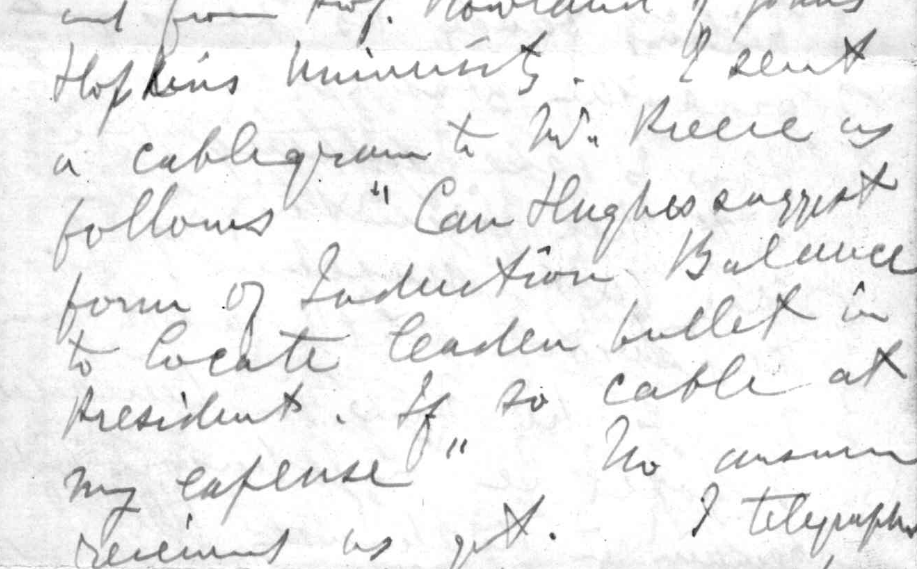 and from Prof. Rowland of Johns
Hopkins University. I sent
a cablegram to Mr. Preece as
follows "Can Hughes suggest
form of Induction Balance
to locate leaden bullet in
President. If so cable at
my expense" No answer
received as yet. I telegraphed